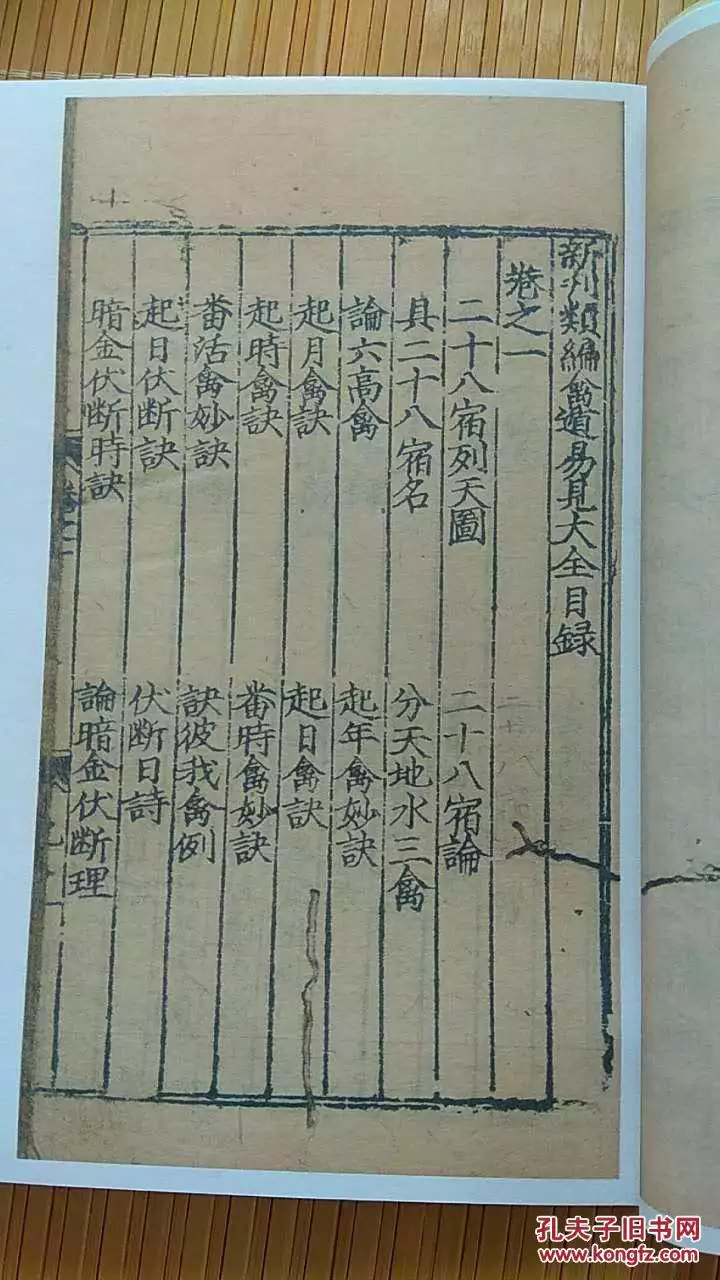 新刋類編禽遁易見大全目録
卷之一
二十八宿列天圖　二十八宿論
具二十八宿名　分天地水三禽
論六高禽　起年禽妙訣
起月禽訣　起日禽訣
起時禽訣　畨時禽妙訣
畨活禽妙訣　訣彼我禽例
起日伏断訣　伏断日詩
暗金伏断時訣　論暗金伏断理
孔夫子旧书网
www.kongfz.com